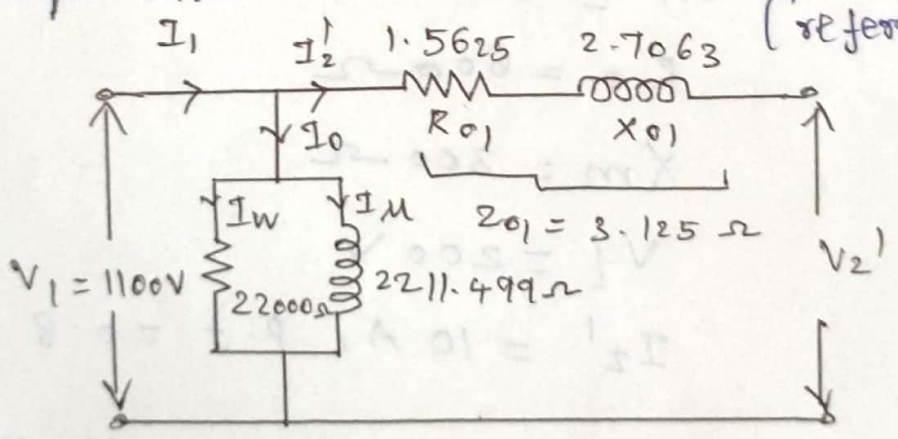 I₁ I₂' 1.5625 2.7063 (refer
I₀ R₀₁ X₀₁
I_W I_M Z₀₁ = 3.125 Ω
V₁ = 1100V 22000Ω 2211.499Ω V₂'